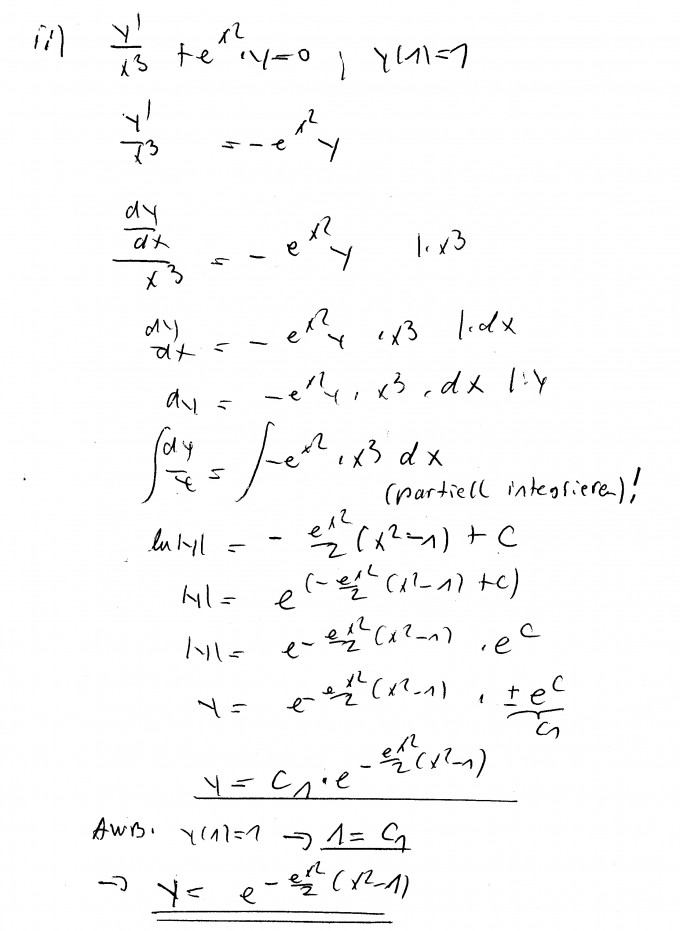 ii) y'/x³ + e^x² · y = 0 ; y(1)=1
y'/x³ = - e^x² y
(dy/dx)/x³ = - e^x² y |· x³
dy/dx = - e^x² y · x³ |· dx
dy = - e^x² y · x³ · dx |: y
∫ dy/y = ∫ -e^x² · x³ dx
(partiell integrieren)!
ln|y| = - e^x²/2 (x²-1) + C
|y| = e^(- e^x²/2 (x²-1) + C)
|y| = e^(- e^x²/2 (x²-1)) · e^C
y = e^(- e^x²/2 (x²-1)) · ± e^C
C₁
y = C₁ · e^(- e^x²/2 (x²-1))
AWB. y(1)=1 → 1 = C₁
→ y = e^(- e^x²/2 (x²-1))